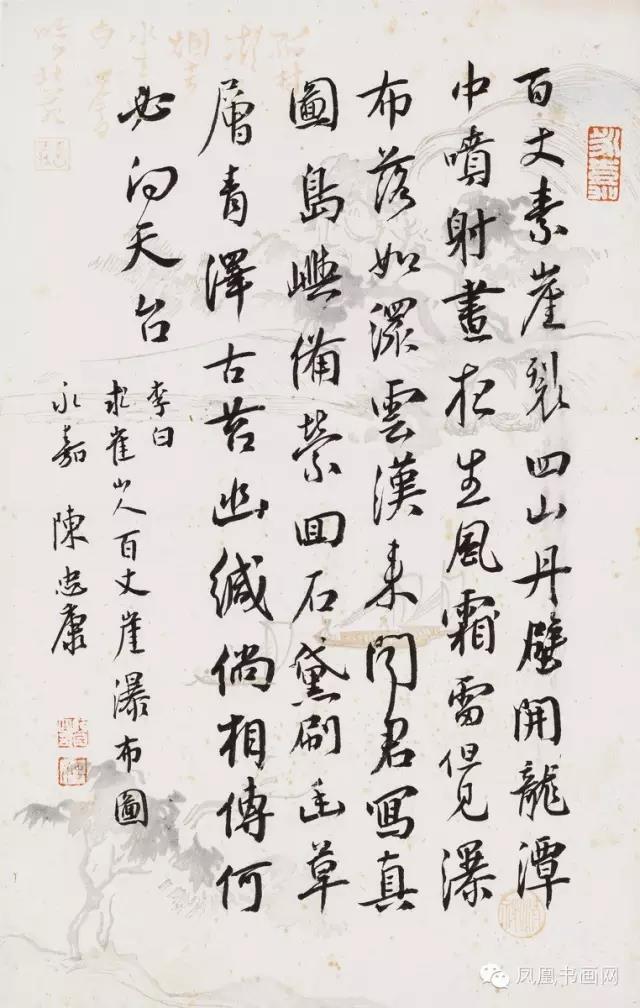 百丈素崖裂四山丹壁開龍潭
中噴射晝夜生風霜雷但見瀑
布落如潀雲漢來聞君寫真
圖島嶼備縈回石黛刷幽草
層青澤古苔幽緘倘相傳何
必向天台
李白
求崔山人百丈崖瀑布圖
永嘉 陳忠康
凤凰书画网